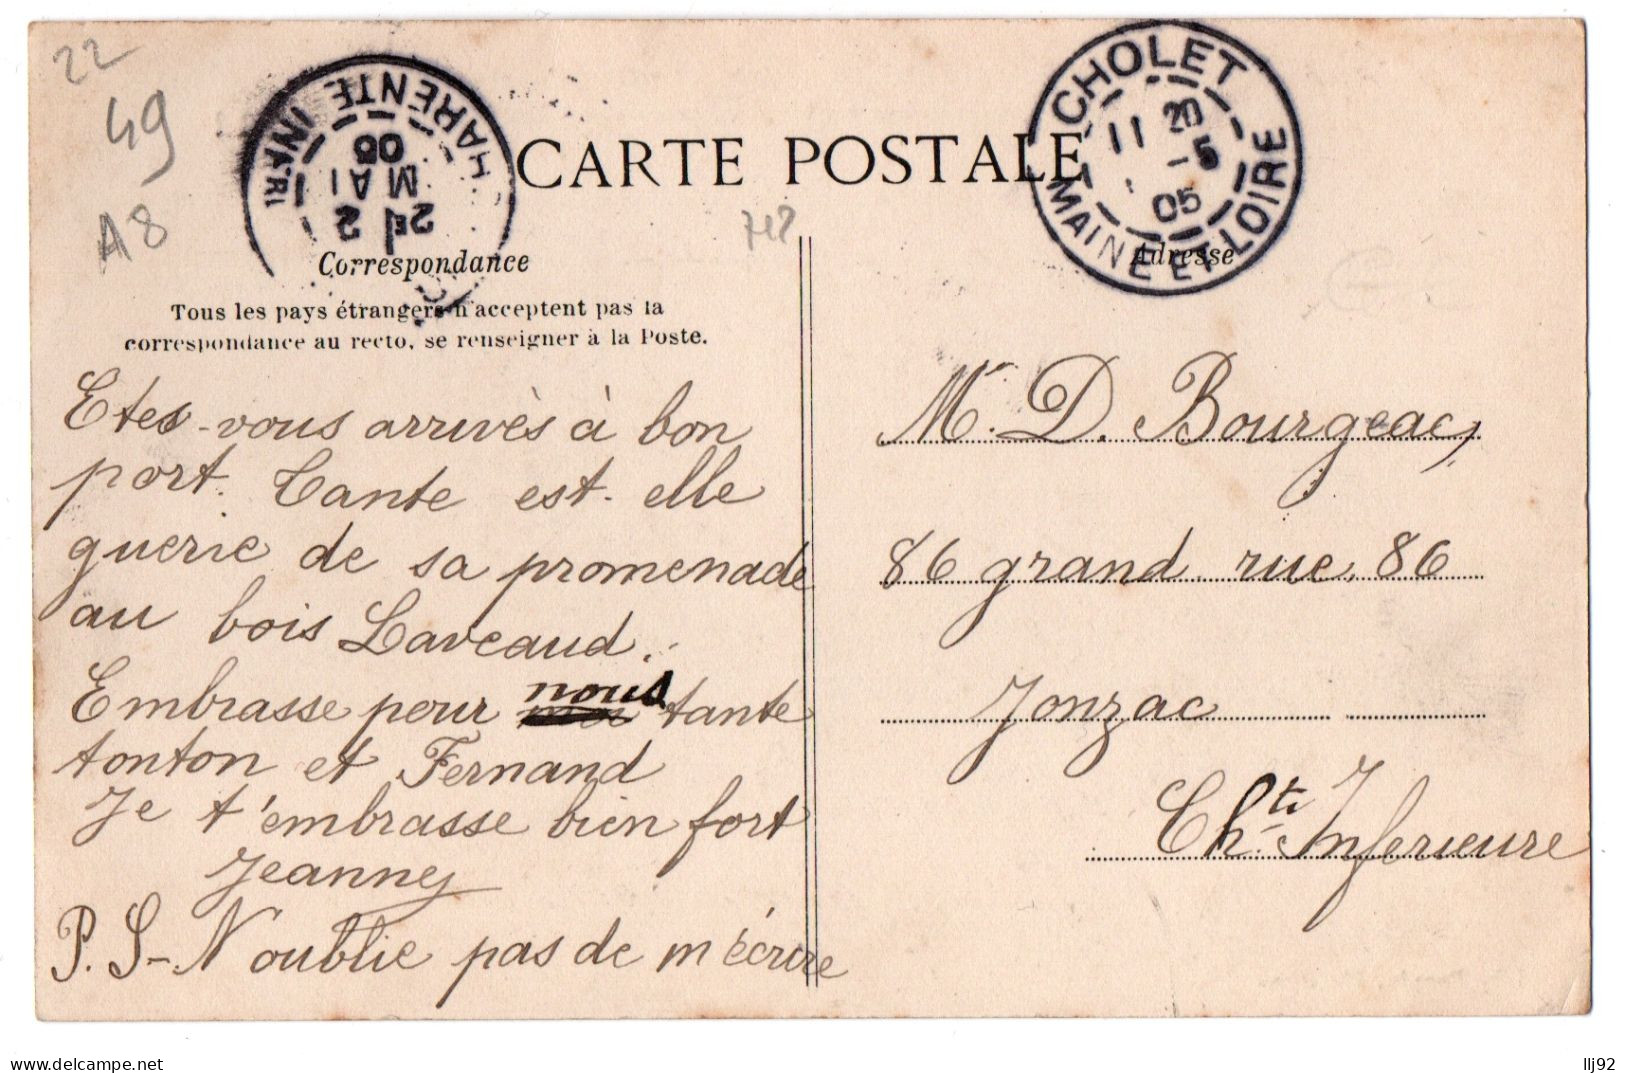 22
49
A8
HARENTE INFRI
2E
MAI
05
CARTE POSTALE
CHOLET
11 20
-5
05
MAINE ET LOIRE
Correspondance
Adresse
Tous les pays étrangers n'acceptent pas la
correspondance au recto, se renseigner à la Poste.
Etes-vous arrivés à bon
port. Tante est-elle
guerie de sa promenade
au bois Laveaud.
Embrasse pour nous tante
tonton et Fernand
Je t'embrasse bien fort
Jeanne
P.S- N'oublie pas de m'écrire
Mr. D. Bourgeac,
86 grand rue, 86
Jonzac
Chte Inferieure
delcampe.net
llj92